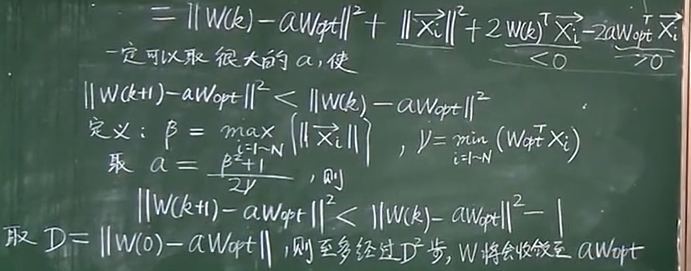 = ‖W(k)-aWopt‖² + ‖X⃗i‖² + 2W(k)ᵀX⃗i - 2aWoptᵀX⃗i
<0 >0
一定可以取很大的a,使
‖W(k+1)-aWopt‖² < ‖W(k)-aWopt‖²
定义: β = max i=1~N {‖X⃗i‖} , γ = min i=1~N (WoptᵀXi)
取 a = (β²+1)/2γ ,则
‖W(k+1)-aWopt‖² < ‖W(k)-aWopt‖² - 1
取 D = ‖W(0)-aWopt‖ ,则至多经过D²步,W将会收敛至 aWopt